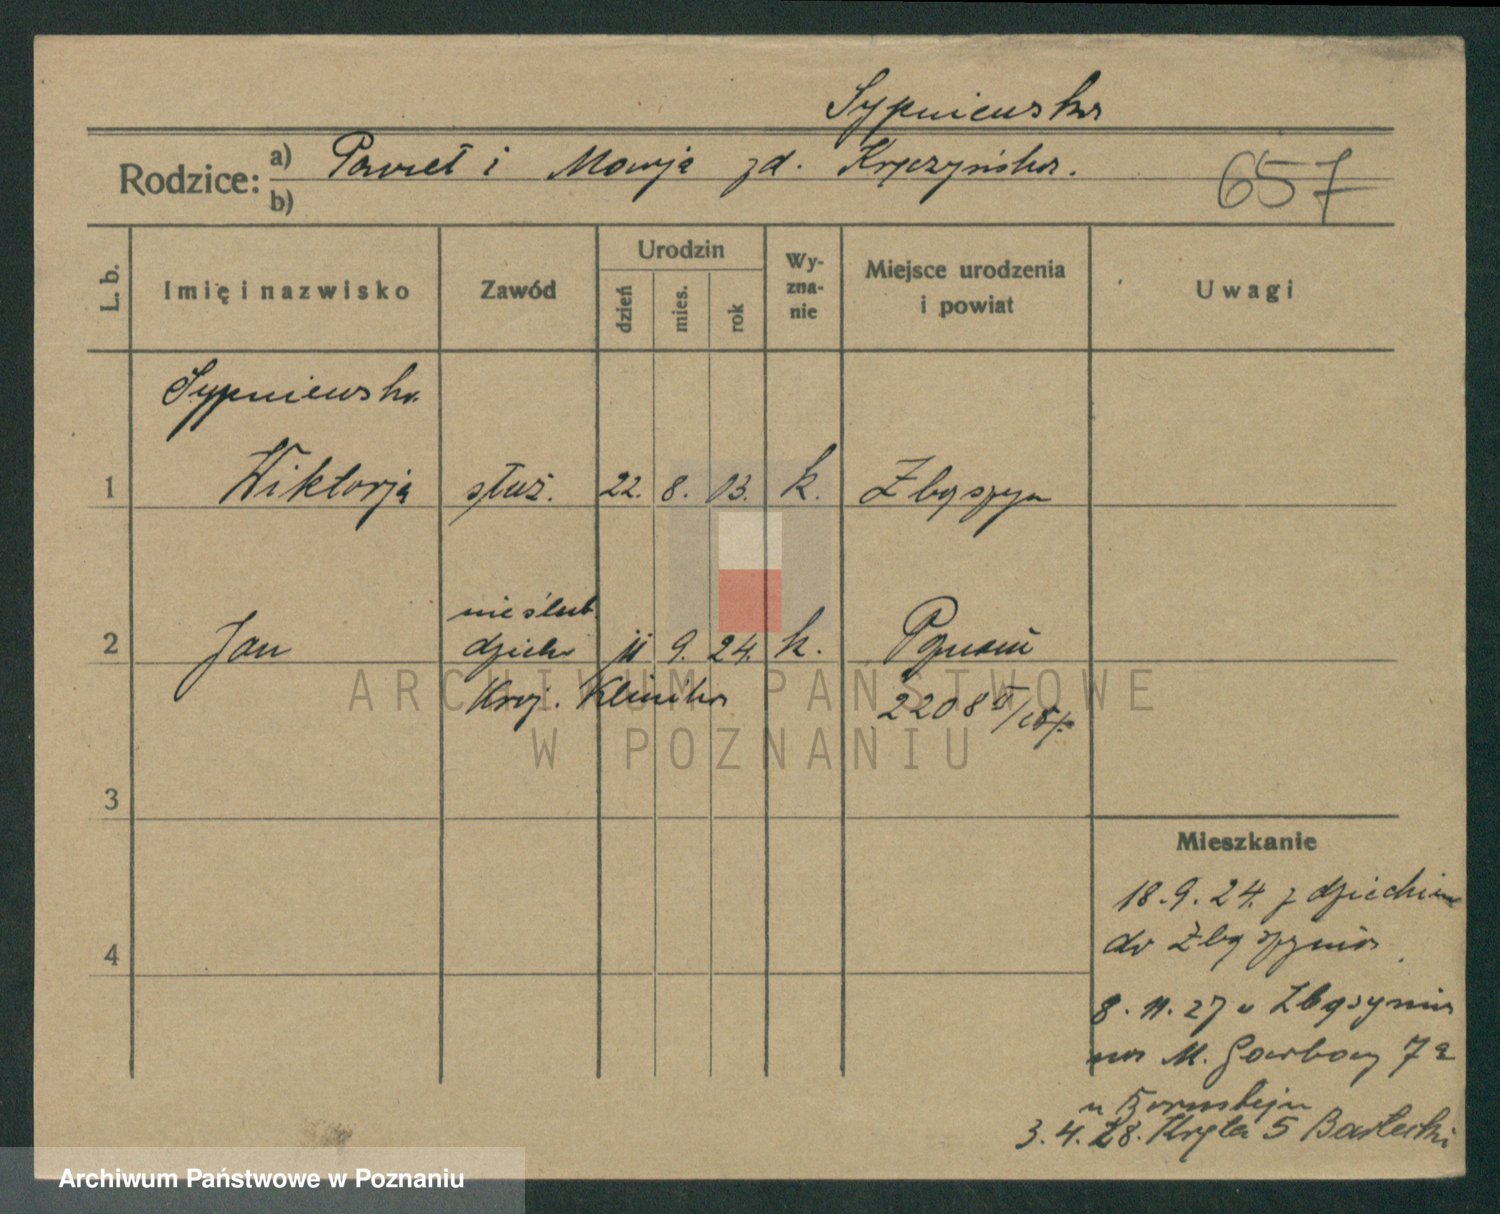 Sypniewska
Rodzice: a) Paweł i Marja zd. Kręczyńska.
b)
657
L. b.
Imię i nazwisko
Zawód
Urodzin
dzień
mies.
rok
Wy-
zna-
nie
Miejsce urodzenia
i powiat
Uwagi
Sypniewska
1 Wiktorja służ. 22. 8. 03. k. Zbąszyn
nieślub.
2 Jan dziecko 11 9. 24. k. Poznań
Kraj. Klinika
2208 II
3
4
Mieszkanie
18.9.24. z dzieckiem
do Zbąszynia
8.11.27 v Zbąszynia
na M. Garbary 7a
u
3.4.28. Kręta 5 Bartecki
ARCHIWUM PAŃSTWOWE
W POZNANIU
Archiwum Państwowe w Poznaniu